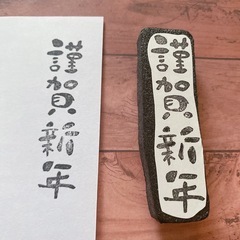 謹賀新年
謹賀新年